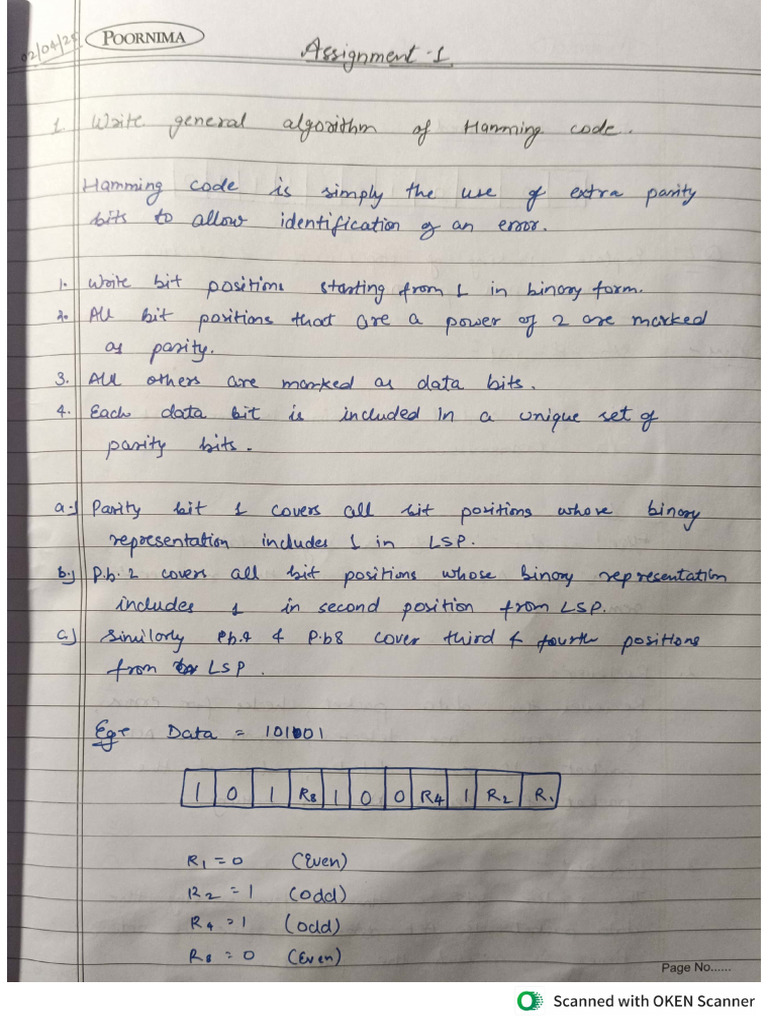 02/04/25
POORNIMA
Assignment-1
1. Write general algorithm of Hamming code.
Hamming code is simply the use of extra parity
bits to allow identification of an error.
1. Write bit positions starting from 1 in binary form.
2. All bit positions that are a power of 2 are marked
as parity.
3. All others are marked as data bits.
4. Each data bit is included in a unique set of
parity bits.
a.) Parity bit 1 covers all bit positions whose binary
representation includes 1 in LSP.
b.) P.b. 2 covers all bit positions whose binary representation
includes 1 in second position from LSP.
c.) Similarly P.b.4 & P.b8 cover third & fourth positions
from LSP.
Eg:- Data = 101001
1 0 1 R8 1 0 0 R4 1 R2 R1
R1 = 0 (Even)
R2 = 1 (odd)
R4 = 1 (odd)
R8 = 0 (Even)
Page No......
Scanned with OKEN Scanner